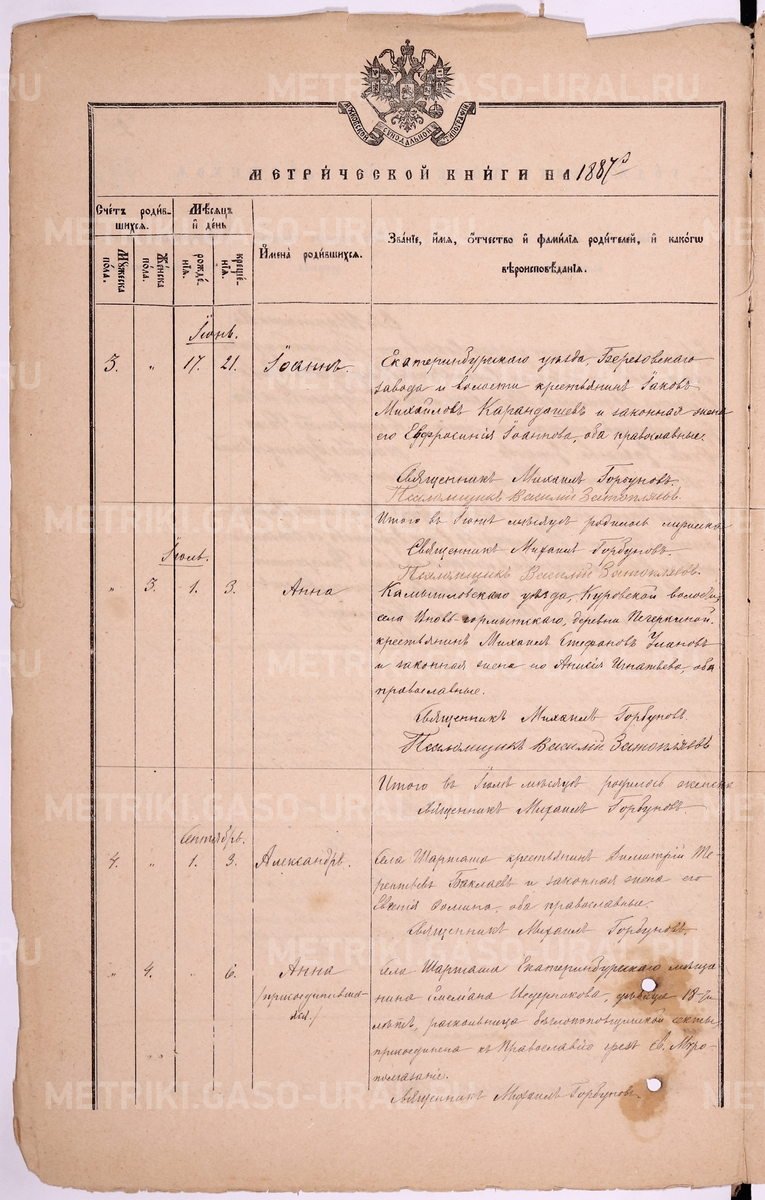 METRIKI.GASO-URAL.RU
МОСКОВСКОЙ СѴНОДАЛЬНОЙ ТИПОГРАФІИ
МЕТРИ́ЧЕСКОЙ КНИ́ГИ НА 1887 г
Сче́тъ роди́в-
шихсѧ.
Мѣ́сѧцъ
и҆ де́нь
Мꙋ́жеска
по́ла.
Же́нска
по́ла.
рожде́-
нїѧ.
креще́-
нїѧ.
И҆мена̀ роди́вшихсѧ.
Зва́нїе, и҆́мѧ, ѻ҆́тчество и҆ фамі́лїѧ роди́телей, и҆ како́гѡ
вѣроисповѣ́данїѧ.
Іюнь.
3. " 17. 21. Іоаннъ.
Екатеринбургскаго уѣзда, Березовскаго
завода и волости крестьянинъ Іаковъ
Михайловъ Карандашевъ и законная жена
его Евфросинія Іоаннова, оба православные.
Священникъ Михаилъ Горбуновъ.
Псаломщикъ Василій
Итого въ Іюнѣ мѣсяцѣ родилось мужска
Священникъ Михаилъ Горбуновъ.
Псаломщикъ Василій
Іюль.
" 3. 1. 3. Анна
Камышловскаго уѣзда, Куровской волости,
села деревни Печеркиной,
крестьянинъ Михаилъ Стефановъ Улановъ
и законная жена его Анисія Игнатьева, оба
православные.
Священникъ Михаилъ Горбуновъ.
Псаломщикъ Василій
Итого въ Іюлѣ мѣсяцѣ родилось женска
Священникъ Михаилъ Горбуновъ.
Сентябрь.
4. " 1. 3. Александръ.
Села Шарташа крестьянинъ Димитрій Те-
рентьевъ Баклаевъ и законная жена его
Евгенія Ѳомина, оба православные.
Священникъ Михаилъ Горбуновъ.
" 4. " 6. Анна
(присоединивша-
яся.)
Села Шарташа Екатеринбургскаго мѣща-
нина дѣвица 18-ти
лѣтъ, раскольница бѣглопоповщинской секты,
присоединена къ Православію чрезъ св. Мѵро-
помазаніе.
Священникъ Михаилъ Горбуновъ.